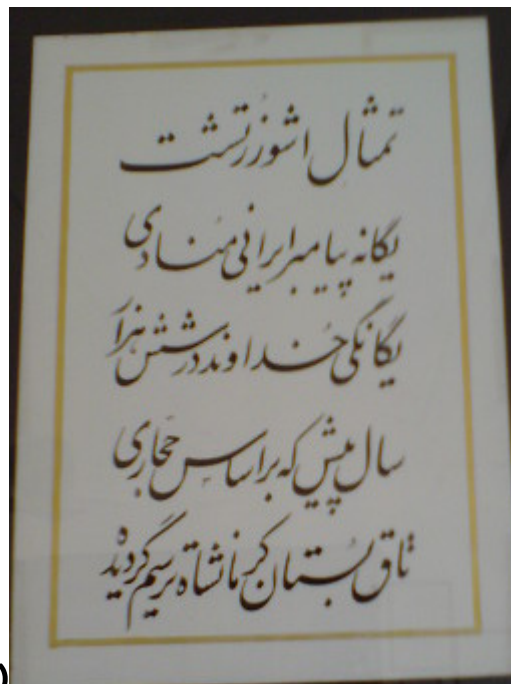 تمثال اشوزرتشت
یگانه پیامبر ایرانی مُنادی
یگانگی خُداوند در شش هزار
سال پیش که بر اساس حَجاری
تاق بُستان کرمانشاه ترسیم گردیده